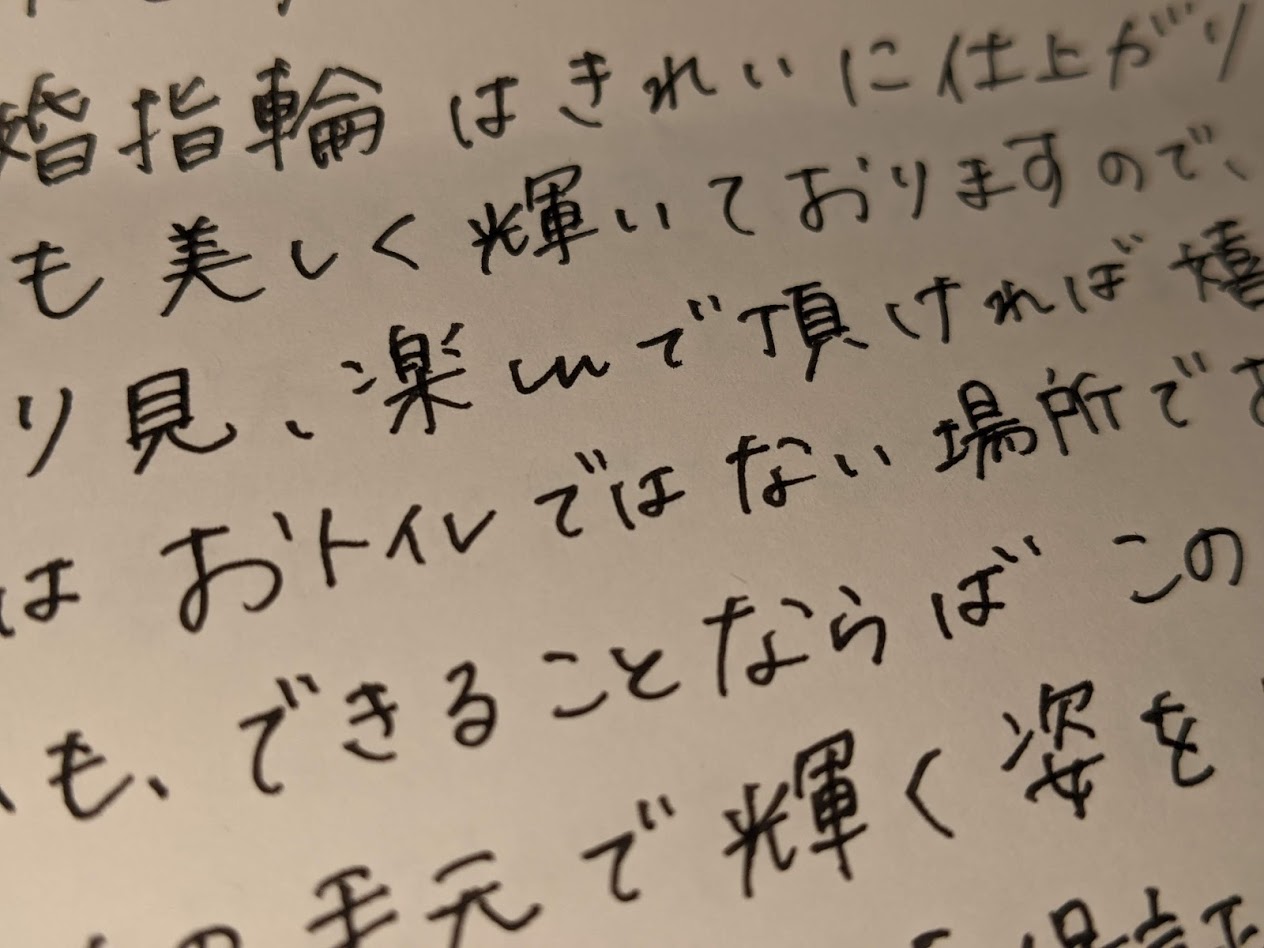 婚指輪はきれいに仕上がり
も美しく輝いておりますので、
り見、楽しんで頂ければ嬉
はおトイレではない場所でさ
も、できることならばこの
の手元で輝く姿を